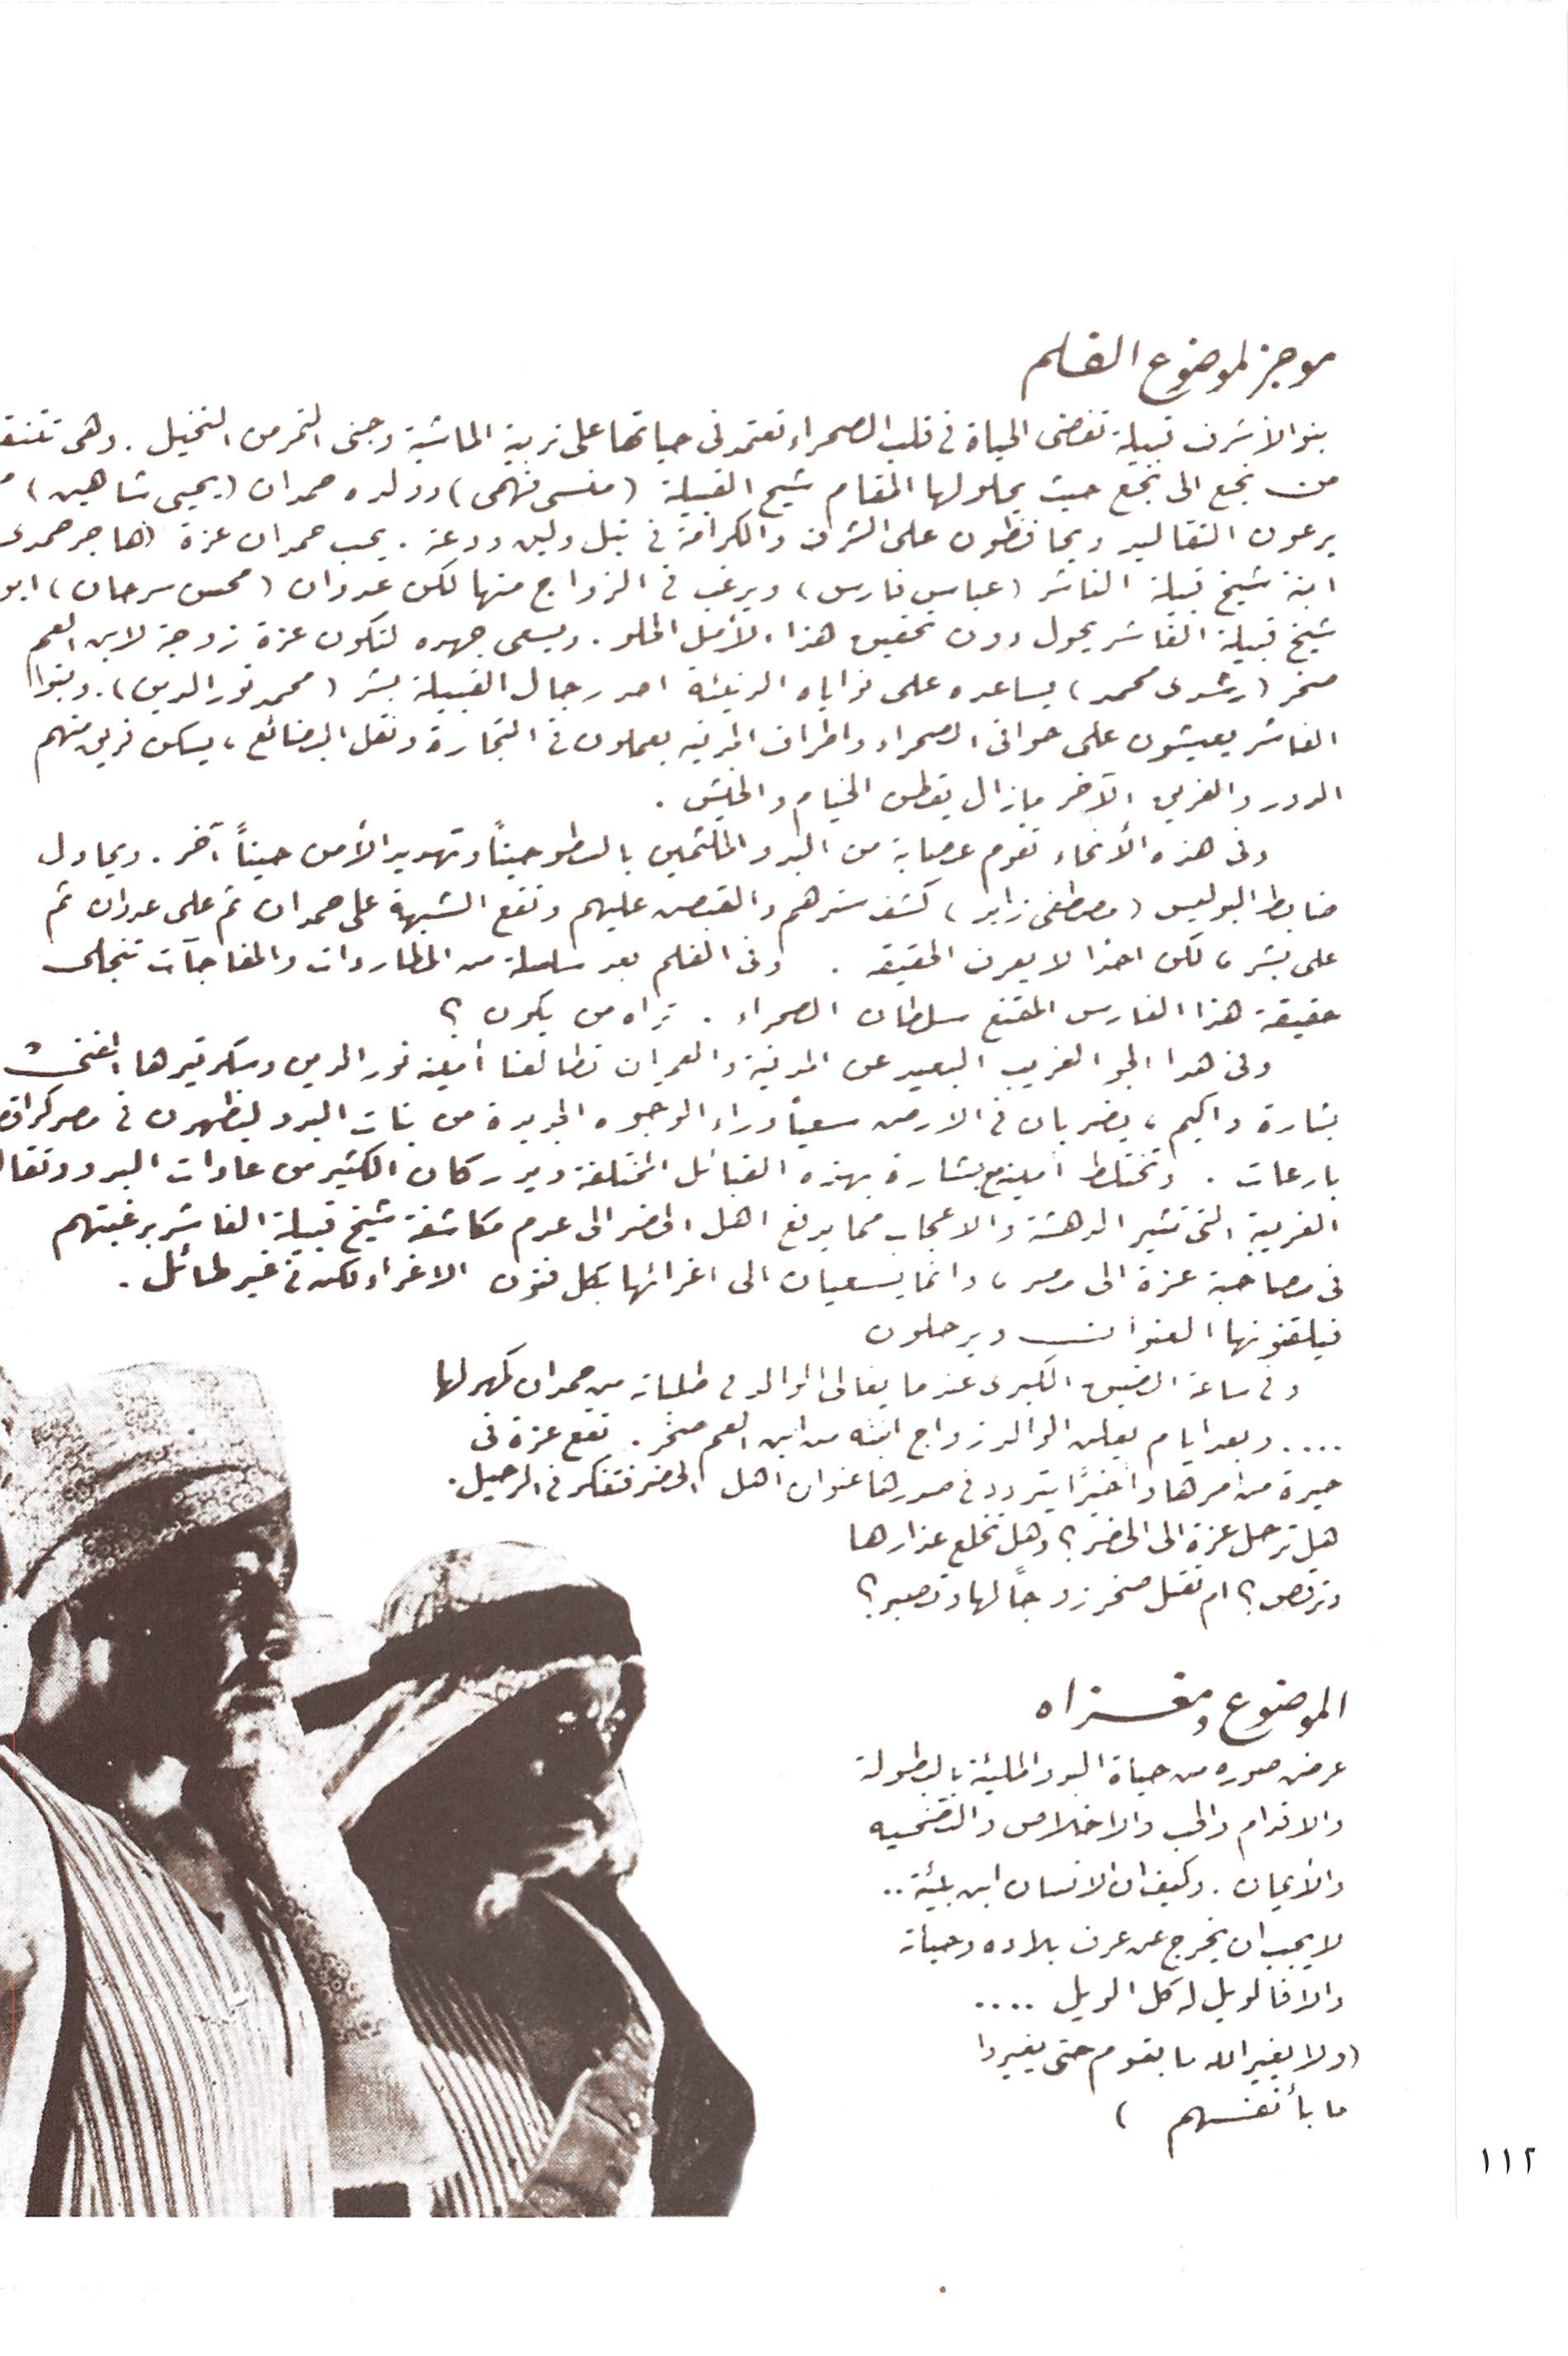 موجز لموضوع الفلم
بنو الأشرف قبيلة تقضى الحياة فى قلب الصحراء تعتمد فى حياتها على تربية الماشية وجنى التمر من النخيل . وهى تتنقـ
من نجع الى نجع حيث يحلو لها المقام شيخ القبيلة ( منسى فهمى ) وولده حمدان ( يحيى شاهين )
يرعون التقاليد ويحافظون على الشرف والكرامة فى نبل ولين ودعة . يحب حمدان عزة ( هاجر حمدى
ابنة شيخ قبيلة الفاشر ( عباس فارس ) ويرغب فى الزواج منها لكن عدوان ( محسن سرحان ) ابو
شيخ قبيلة الفاشر يحول دون تحقيق هذا الأمل الحلو . ويسعى جهده لتكون عزة زوجة لابن العم
صخر ( رشدى محمد ) يساعده على نواياه الدنيئة احد رجال القبيلة بشر ( محمد نور الدين ) . وبنوا
الفاشر يعيشون على حوافى الصحراء واطراف المدنيه يعملون فى التجارة ونقل البضائع ، يسكن فريق منهم
الدور والفريق الآخر مازال يقطن الخيام والخيش .
وفى هذه الأنحاء تقوم عصابة من البدو الملثمين بالسطو حيناً وتهديد الأمن حيناً آخر . ويحاول
ضابط البوليس ( مصطفى زايد ) كشف سترهم والقبض عليهم وتقع الشبهة على حمدان ثم على عدوان ثم
على بشر ، لكن احدا لا يعرف الحقيقه . وفى الفلم بعد سلسلة من المطاردات والمفاجآت تتجلى
حقيقة هذا الفارس المقنع سلطان الصحراء . تراه من يكون ؟
وفى هدا الجو الغريب البعيد عن المدنية والعمران تطالعنا أمينه نور الدين وسكرتيرها المغنى
بشارة واكيم ، يضربان فى الارض سعياً وراء الوجوه الجديدة من بنات البدو ليظهرن فى مصر كراقصـ
بارعات . وتختلط أمينه مع بشارة بهذه القبائل المختلفة ويدركان الكثير من عادات البدو وتقا
الغريبة التى تثير الدهشة والاعجاب مما يدفع اهل الحضر الى عدم مكاشفة شيخ قبيلة الفاشر برغبتهم
فى مصاحبة عزة الى مصر ، وانما يسعيان الى اغرائها بكل فنون الاغراء لكن فى غير طائل .
فيلقنونها العنوان ويرحلون
وفى ساعة الضيق الكبرى عندما يغالى الوالد فى طلباته من حمدان كمهر لها
.... وبعد ايام يعلن الوالد زواج ابنته من ابن العم صخر . تقع عزة فى
حيرة من امرها وأخيرًا يتردد فى صدرها عنوان أهل الحضر فتفكر فى الرحيل .
هل ترحل عزة الى الحضر ؟ وهل تخلع عذارها
وترقص ؟ ام تقبل صخر زوجاً لها وتصبر ؟
الموضوع ومغزاه
عرض صوره من حياة البدو المليئة بالبطولة
والاقدام والحب والاخلاص والتضحيه
والأيمان . وكيف ان الانسان ابن بيئة ..
لا يجب ان يخرج عن عرف بلاده وحياته
والا فالويل له كل الويل ....
( ولا يغير الله ما بقوم حتى يغيروا
ما بأنفسهم )
١١٢